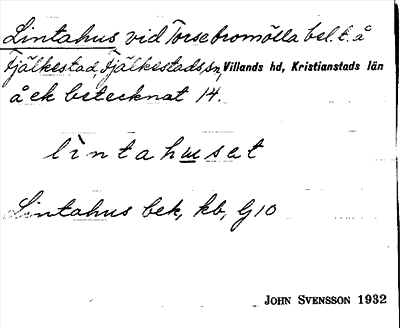 Lintahus vid Torsebromölla bel. t. å
Fjälkestad, Fjälkestads sn, Villands hd, Kristianstads län
å ek betecknat 14.
lìntahusat
Lintahus bek, kb, G10
JOHN SVENSSON 1932